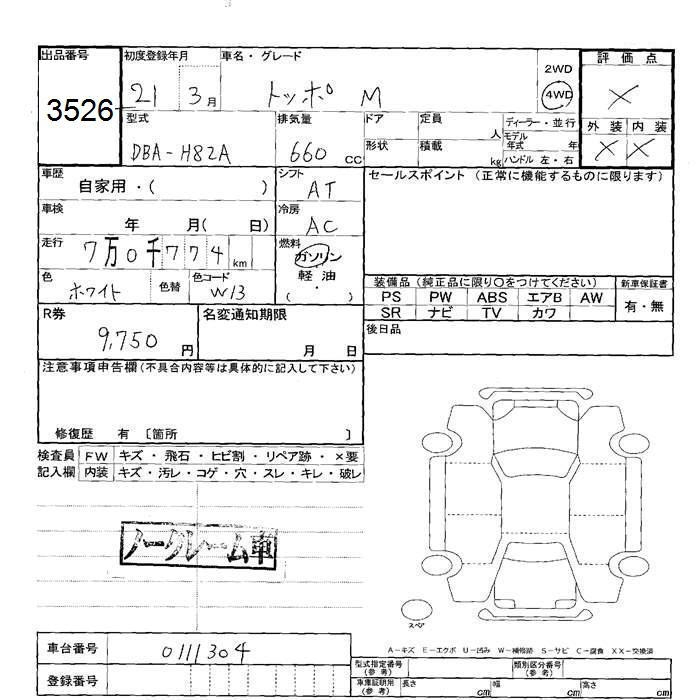 出品番号 初度登録年月 車名・グレード 2WD 評価点
3526 21 3月 トッポ M 4WD ×
型式 排気量 ドア 定員 ディーラー・並行 外装 内装
DBA-H82A 660 CC 人 モデル年式 年 × ×
形状 積載 kg ハンドル 左・右
車歴 自家用・( ) シフト AT セールスポイント (正常に機能するものに限ります)
車検 年 月( 日) 冷房 AC
走行 7万0千774km 燃料 ガソリン
軽油
・
( )
色 ホワイト 色替 色コード W13
装備品 (純正品に限り○をつけてください) 新車保証書
PS PW ABS エアB AW 有・無
SR ナビ TV カワ
R券 9,750円 名変通知期限 月 日 後日品
注意事項申告欄(不具合内容等は具体的に記入して下さい)
修復歴 有 〔箇所 〕
検査員 FW キズ・飛石・ヒビ割・リペア跡・×要
記入欄 内装 キズ・汚レ・コゲ・穴・スレ・キレ・破レ
ノークレーム車
スペア
A-キズ E-エクボ U-凹み W-補修跡 S-サビ C-腐食 XX-交換済
車台番号 0111304 型式指定番号(参考) 類別区分番号(参考)
登録番号 車庫証明用(参考) 長さ cm 幅 cm 高さ cm